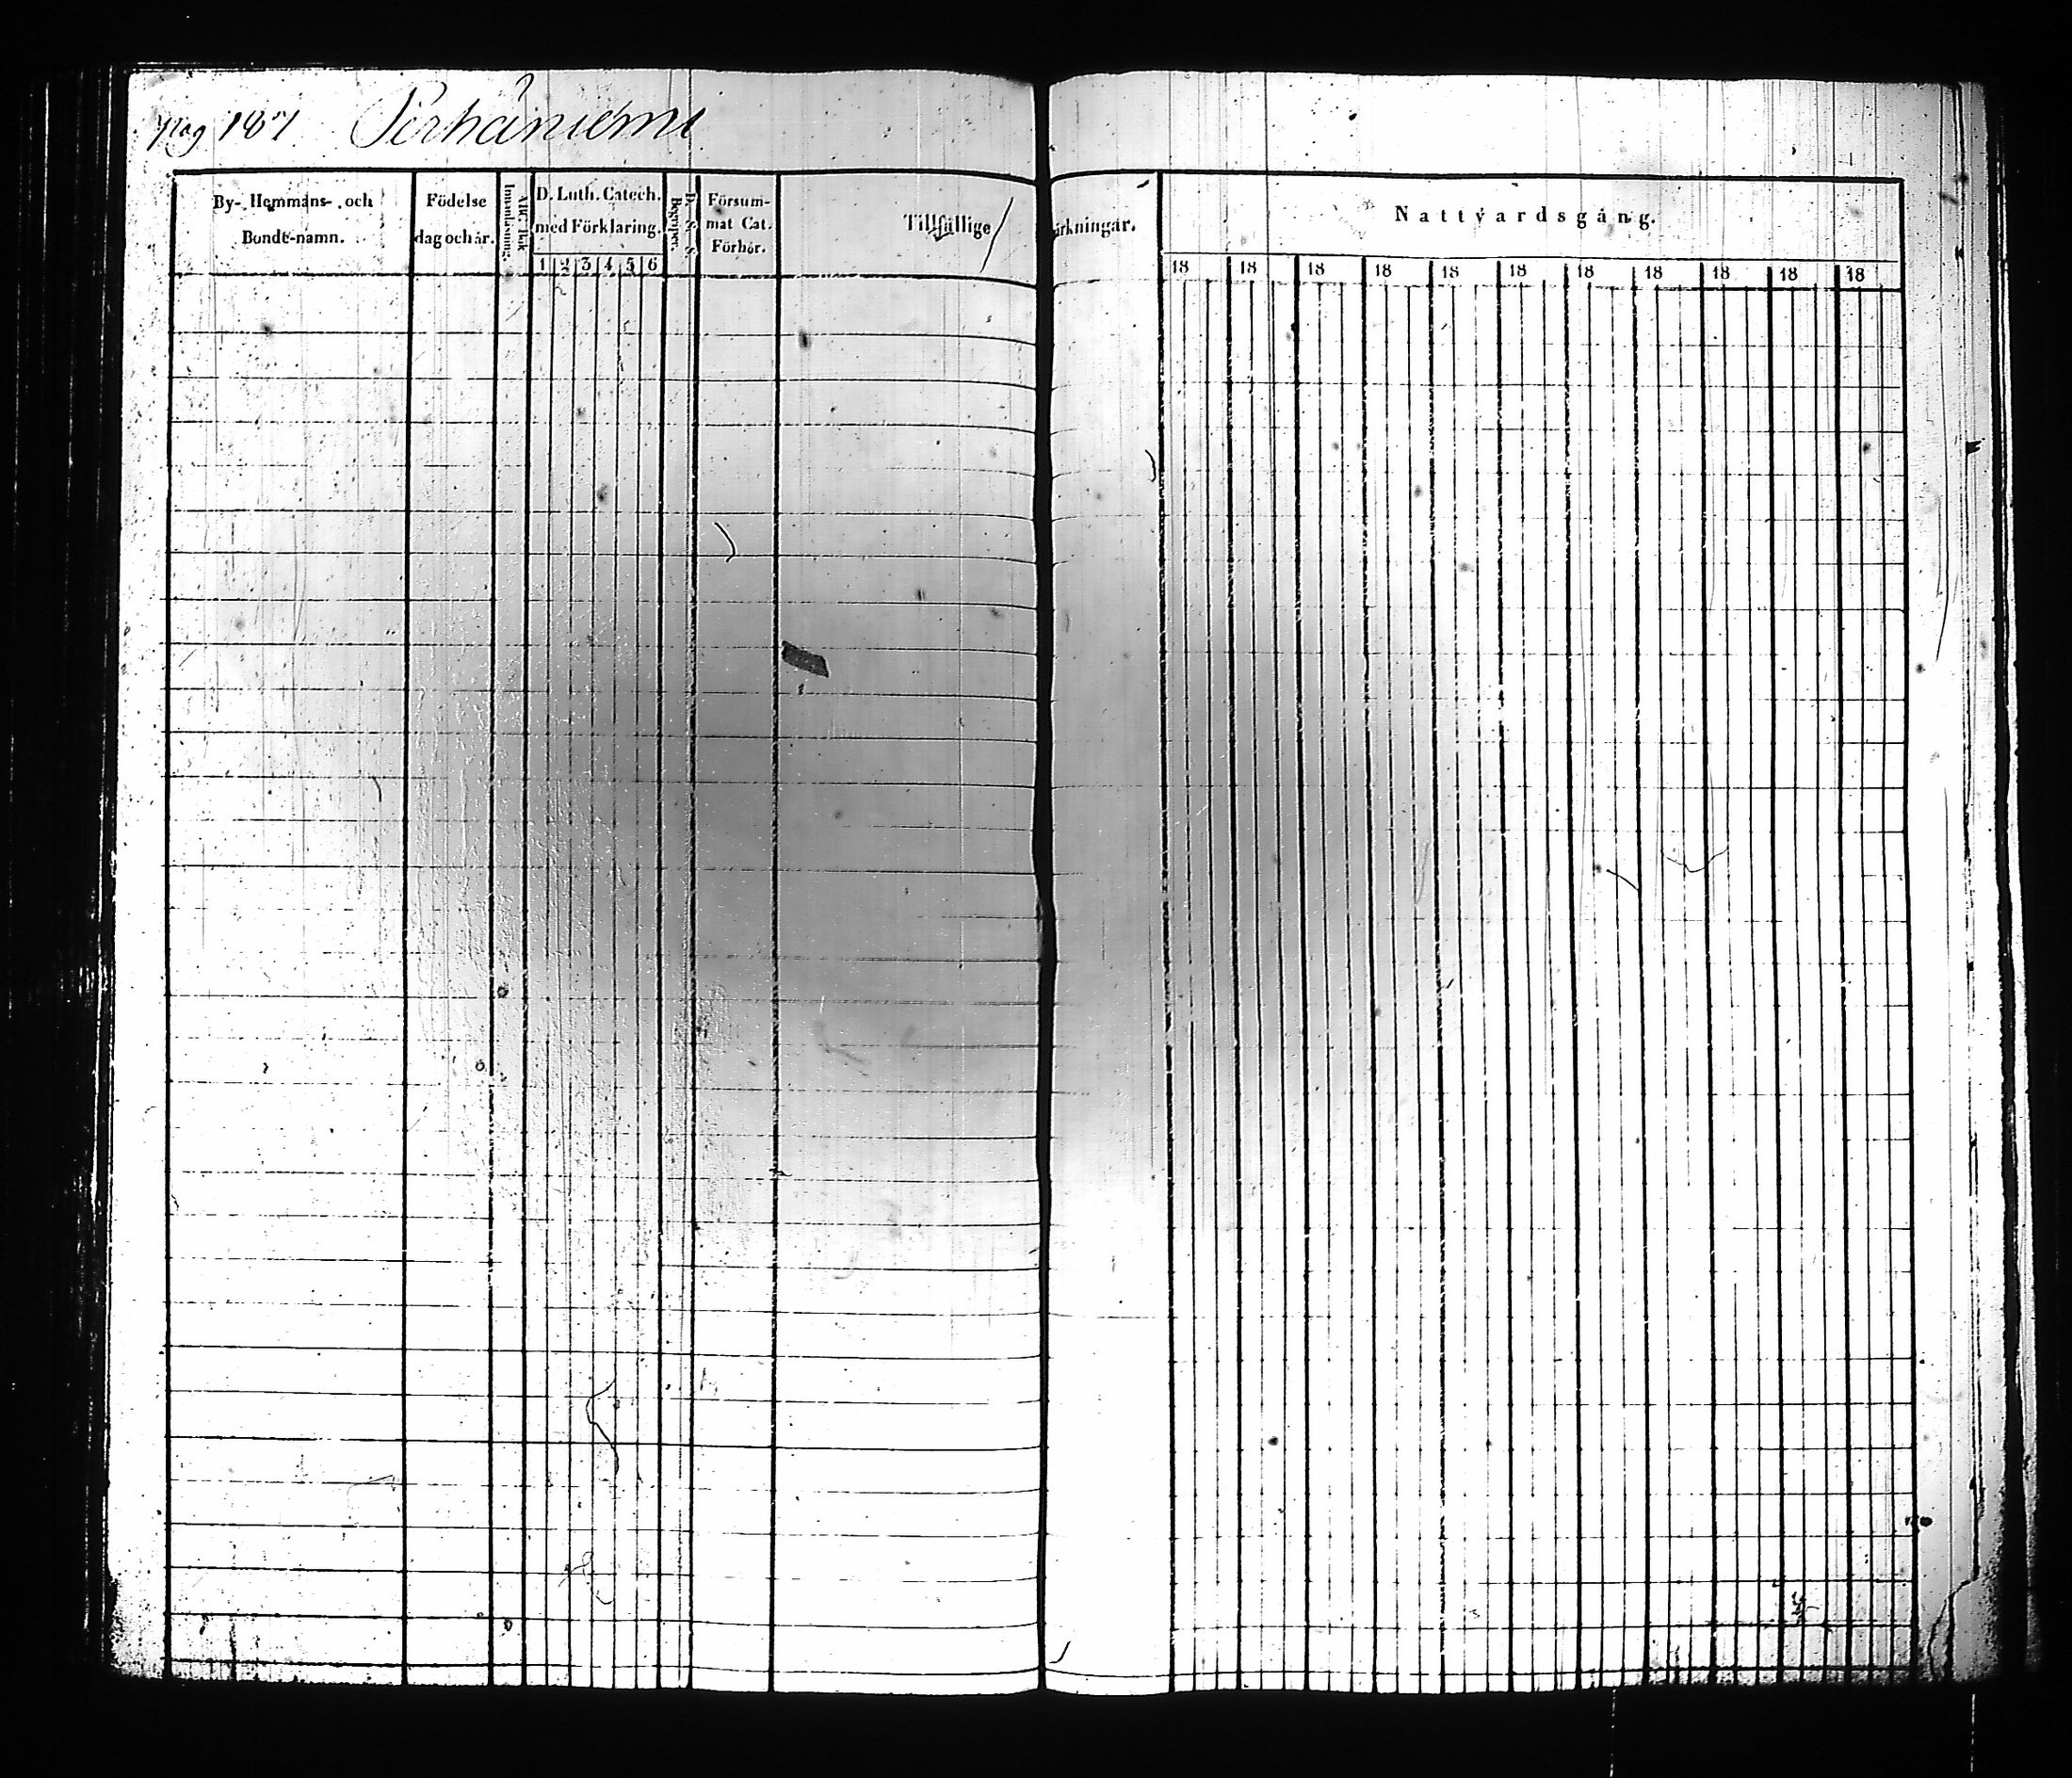 pag 187 Perhäniemi
By- Hemmans- och Bonde-namn.
Födelse dag och år.
ABC-Bok Innanläsning.
D. Luth. Catech. med Förklaring.
1 2 3 4 5 6
Begriper.
Försummat Cat. Förhör.
Tillfällige
ärkningar.
Nattvardsgång.
18 18 18 18 18 18 18 18 18 18 18